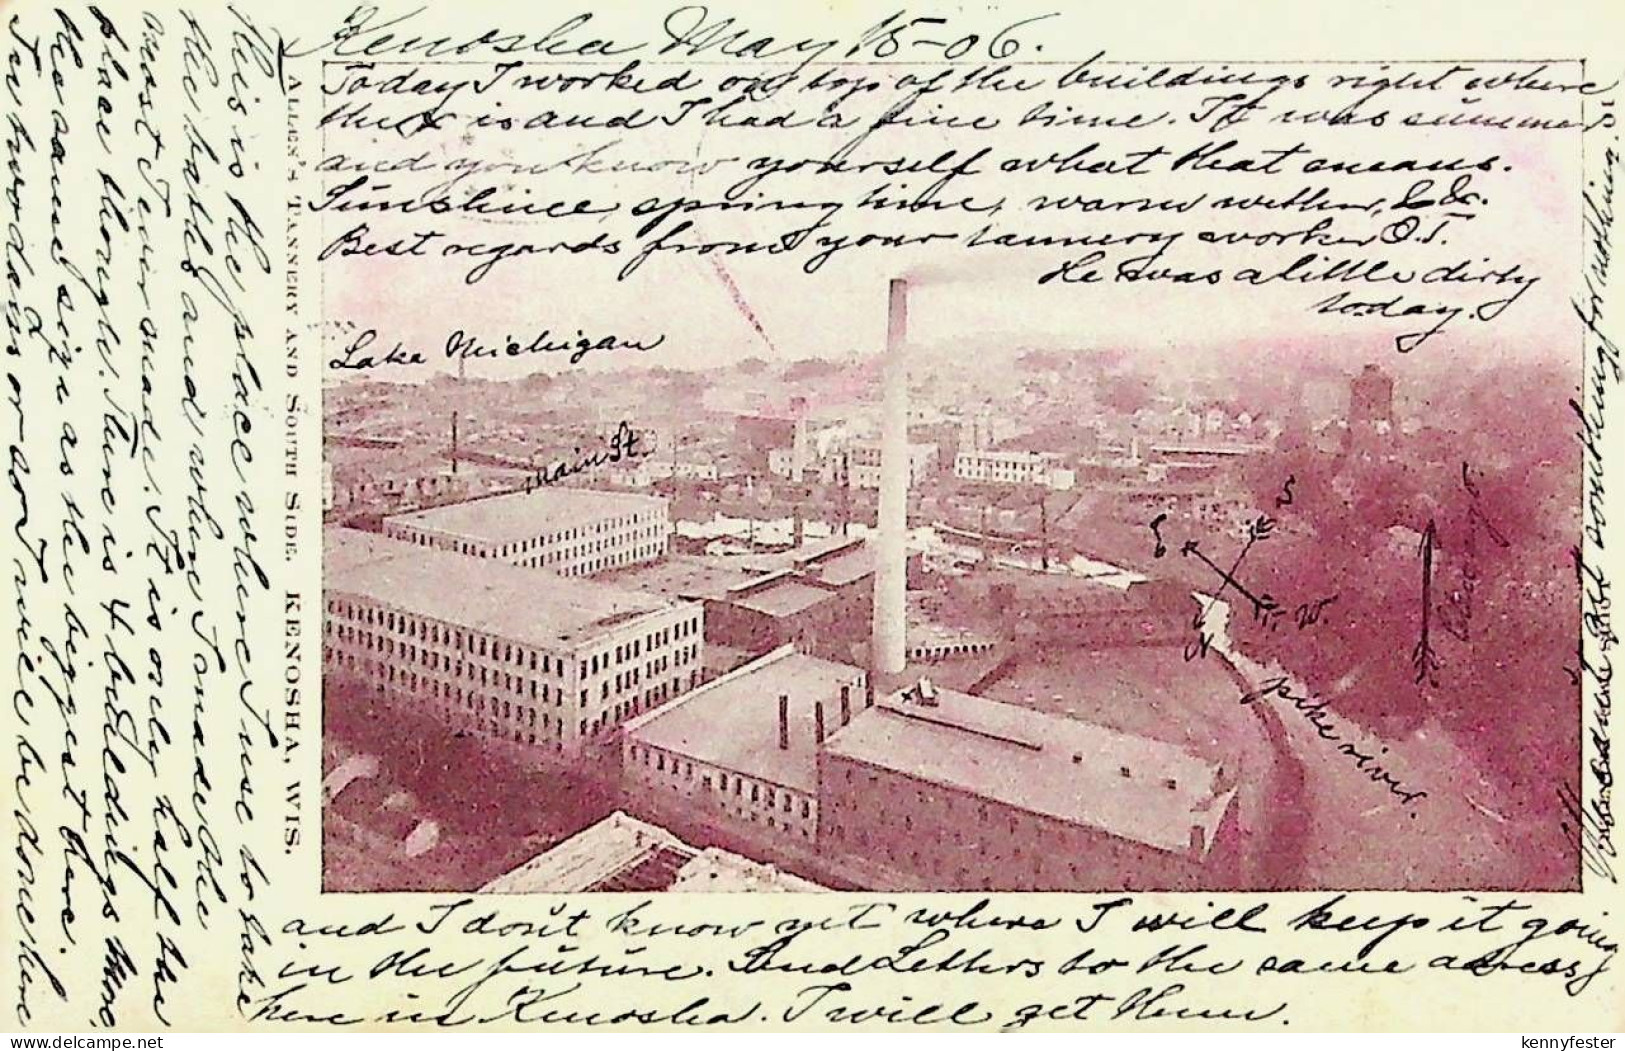 Kenosha May 15-06.
Today I worked on top of the buildings right where
the x is and I had a fine time. It was summer
and you know yourself what that means.
Sunshine, springtime, warm wether, &c.
Best regards from your tannery worker O.T.
He was a little dirty
today.
Lake Michigan
Main St.
S
E
W.
N
pike river.
ALLES'S TANNERY AND SOUTH SIDE. KENOSHA, WIS.
This is the place where I use to take
the baths and when I made the
most I ever made. It is only half the
place though. There is 4 buildings more
the same size as the biggest here.
In two days or so I will be done here
and I don't know yet where I will keep it going
in the future. Send Letters to the same adress
here in Kenosha. I will get them.
something for nothing
delcampe.net
kennyfester